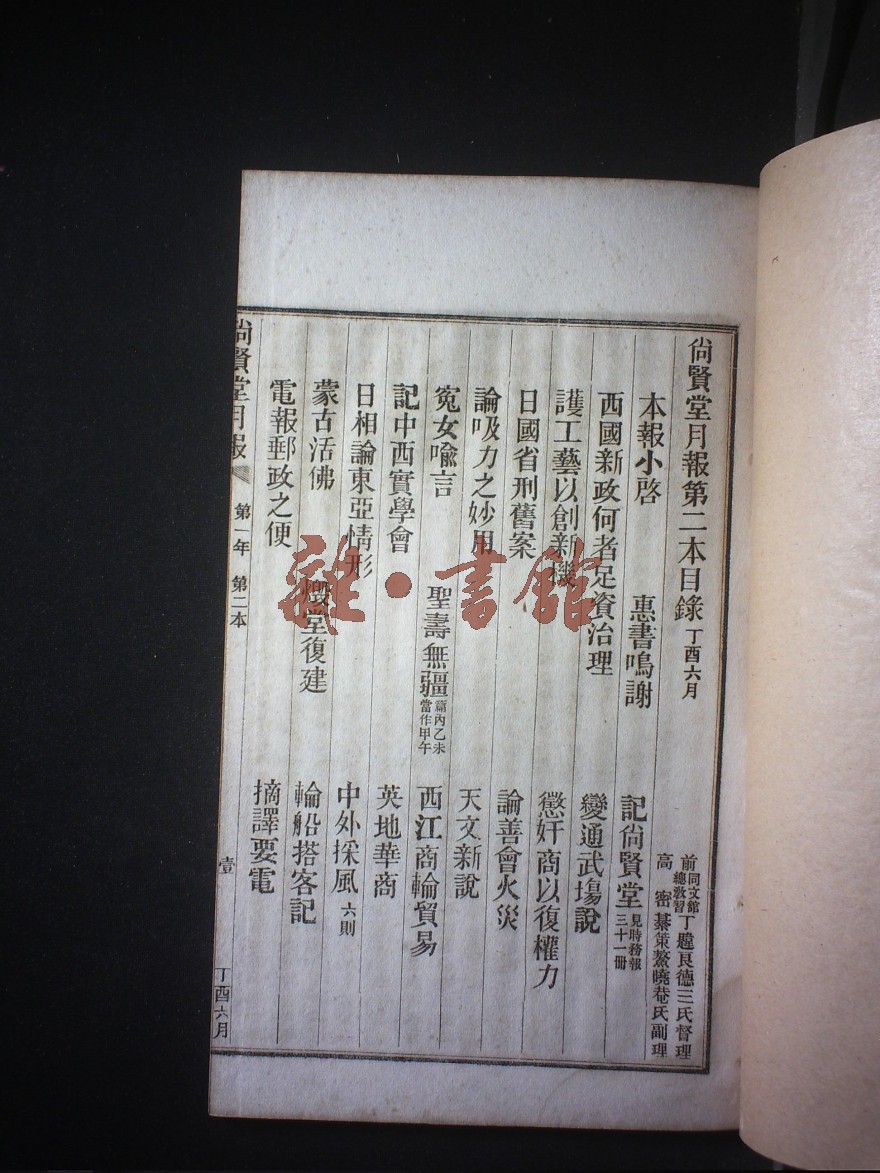 尙賢堂月報第二本目錄 丁酉六月
前同文館總敎習丁韙良德三氏督理
高密綦策鰲曉菴氏副理
本報小啓 惠書鳴謝 記尙賢堂 見時務報三十一冊
西國新政何者足資治理 變通武塲說
護工藝以創新機 懲奸商以復權力
日國省刑舊案 論善會火災
論吸力之妙用 天文新說
冤女喩言 聖壽無疆 篇內乙未當作甲午 西江商輪貿易
記中西實學會 英地華商
日相論東亞情形 中外採風 六則
蒙古活佛 燬堂復建 輪船搭客記
電報郵政之便 摘譯要電
尙賢堂月報 第一年 第二本 壹 丁酉六月
雜·書館